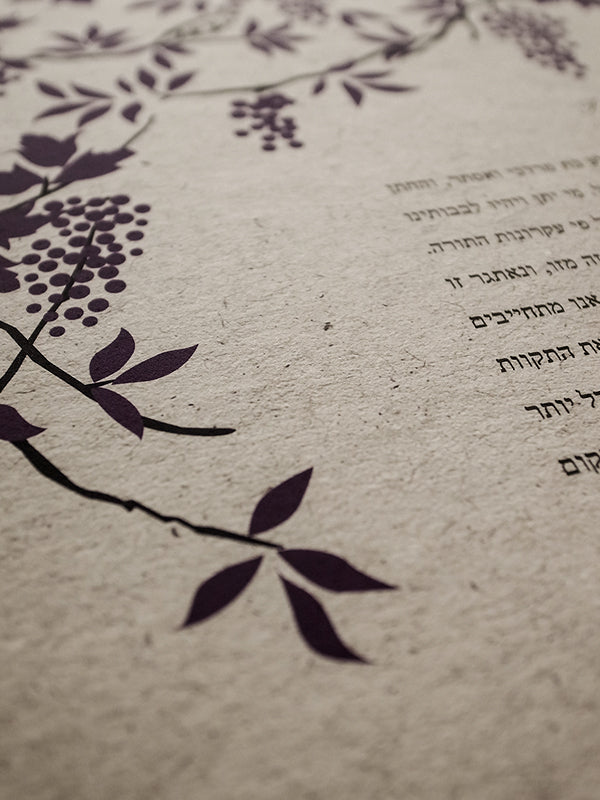 בת מרדכי ואסתר, והחתן
מי יתן ויהיו לבבותינו
פי עקרונות התורה.
זה מזו, ובאתגר זו
אנו מתחייבים
את התקוות
יותר
קום